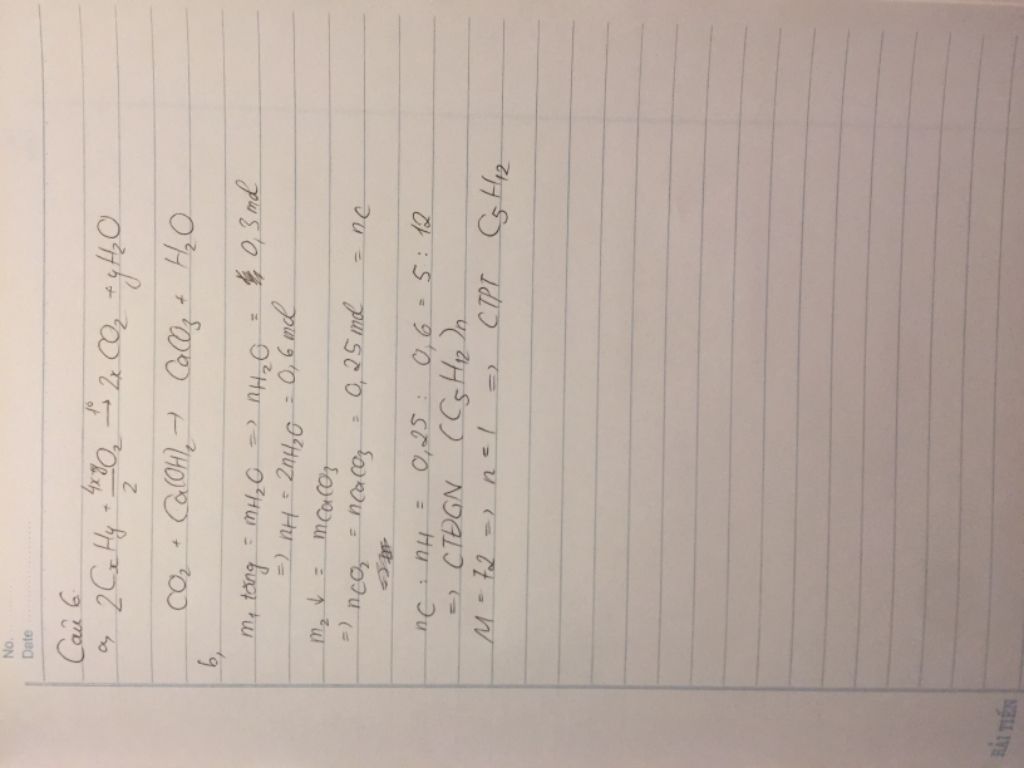 No.
Date
Câu 6.
a, 2CxHy + 4x+y/2 O2 →t° 2xCO2 + yH2O
CO2 + Ca(OH)2 → CaCO3 + H2O
b,
m1 tăng = mH2O => nH2O = 0,3 mol
=> nH = 2nH2O = 0,6 mol
m2 ↓ = mCaCO3
=> nCO2 = nCaCO3 = 0,25 mol = nC
nC : nH = 0,25 : 0,6 = 5 : 12
=> CTĐGN (C5H12)n
M = 72 => n = 1 => CTPT C5H12
HẢI TIẾN